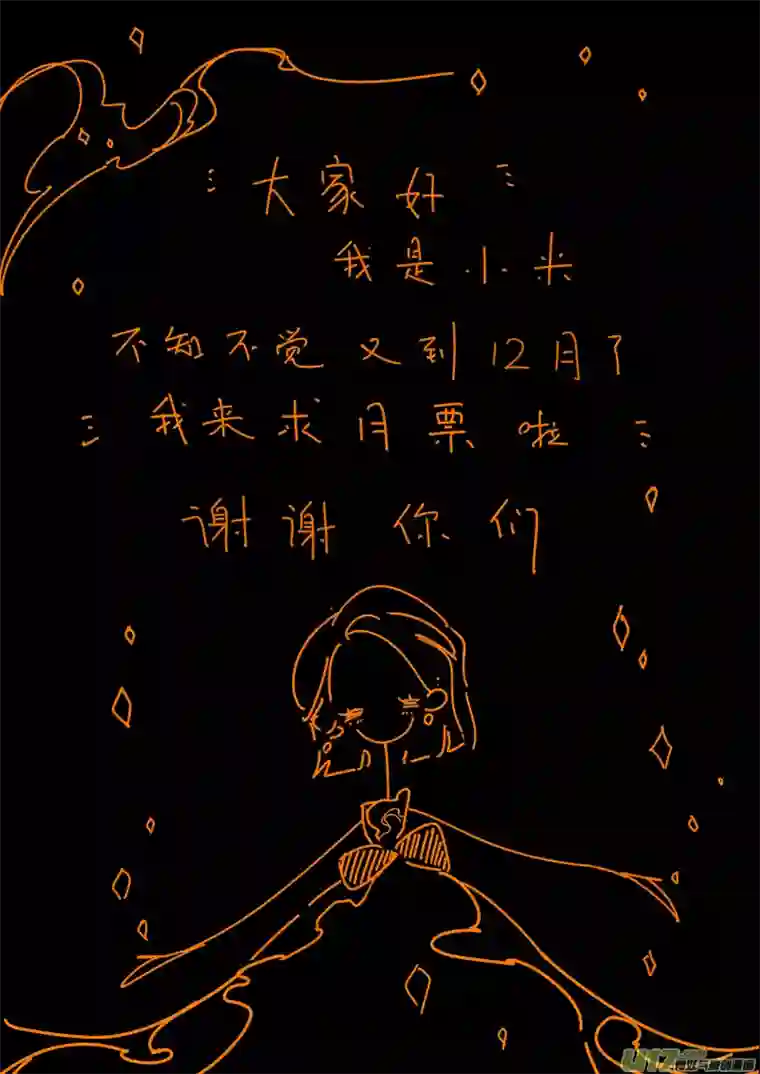 大家好
我是小米
不知不觉又到12月了
我来求月票啦
谢谢你们
U17